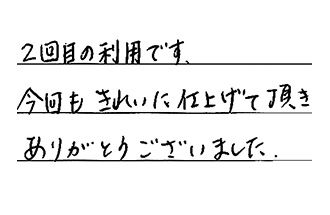 2回目の利用です.
今回も きれいに仕上げて頂き
ありがとうございました.